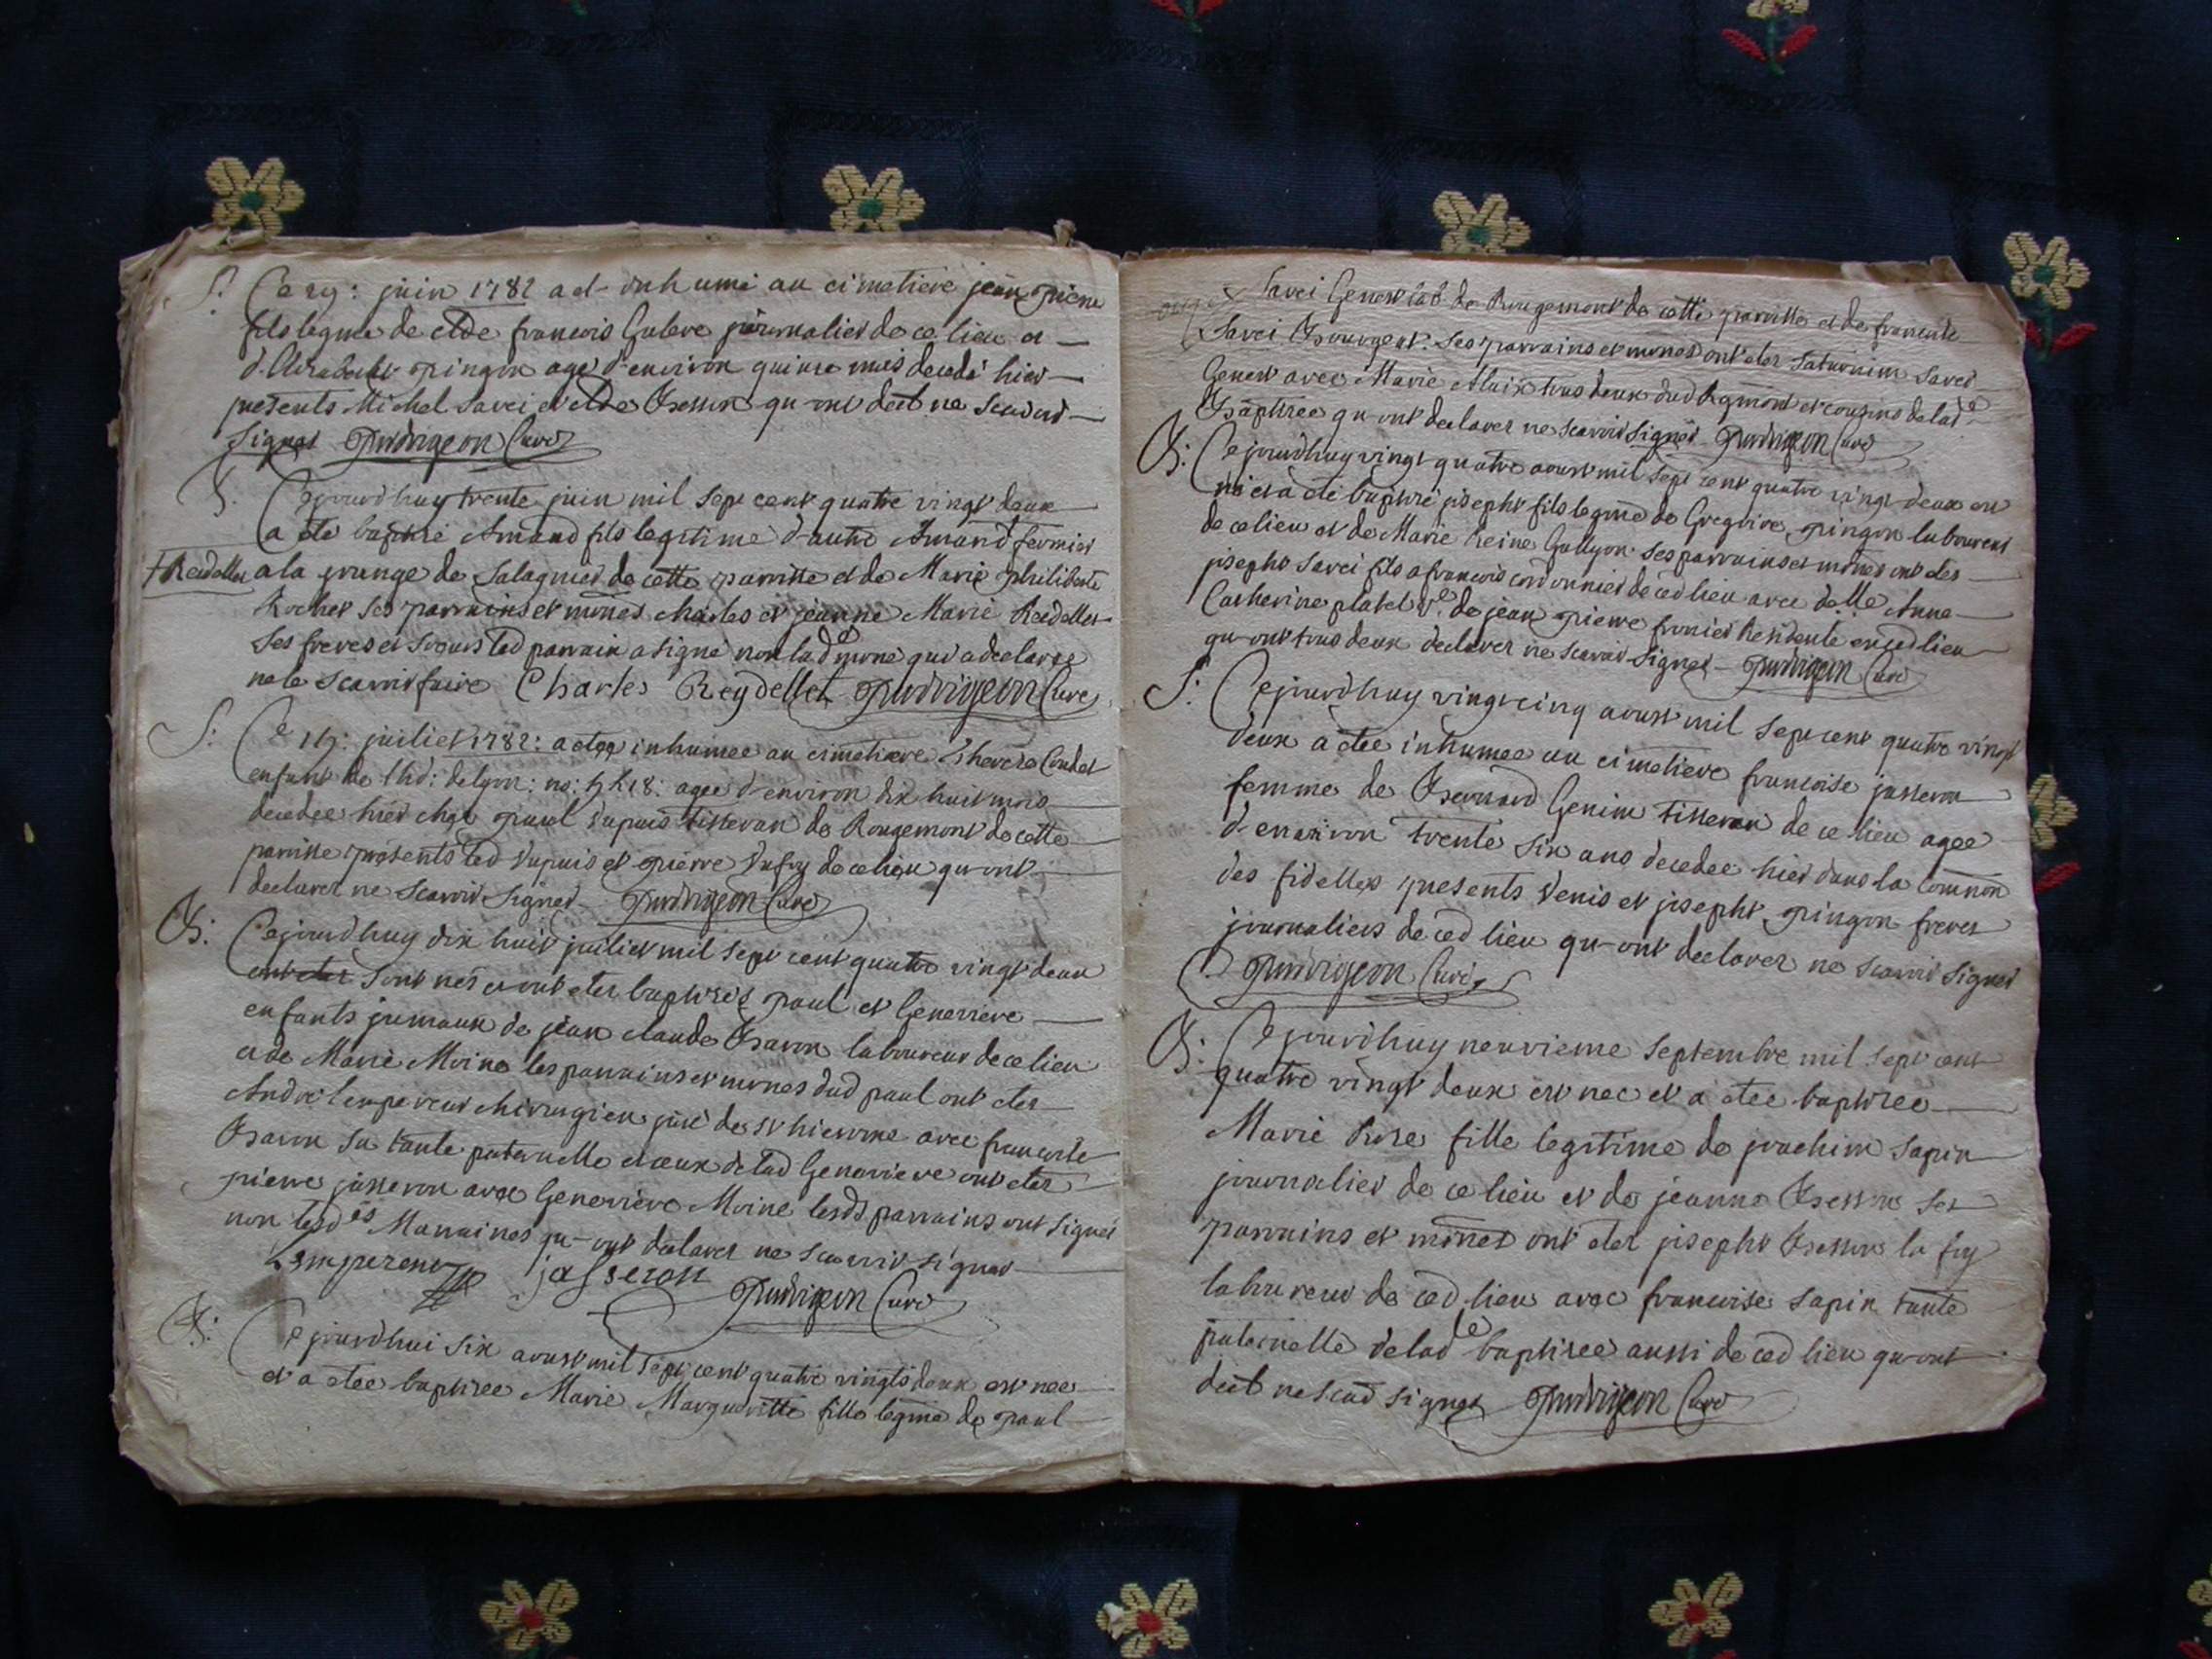 S. Ce 29: juin 1782 a et inhumé au cimetiere jean pierre
fils legme de clde francois Galere journalier de ce lieu et
d'Elisabeth pingon agé d'environ quinse mois decedé hier
presents Michel Savei et clde Besson qu-ont declt ne scavoir
signer Pudrigeon Curé
B. Cejourdhuy trente juin mil sept cent quatre vingt deux
a été baptisé Amand fils legitime d'autre Amand fermier
+ Reidellet a la grange de Salagnier de cette parroisse et de Marie philiberte
Rochet ses parrains et mnes charles et jeanne Marie Reidellet
ses freres et soeurs led parrain a signé non lade mne qui a declaree
ne le scavoir faire Charles Reydellet Pudrigeon Curé
S: Ce 1er: juillet 1782: a etee inhumee au cimetiere Therese
enfant de lhd: de lyon: no: agee d'environ dix huit mois
decedee hier chez paul Dupuis tisseran de Rougemont de cette
parroisse presents led Dupuis et pierre Dufuy de ce lieu qu-ont
declarer ne scavoir signer Pudrigeon Curé
B: Cejourdhuy dix huit juillet mil sept cent quatre vingt deux
ont eter sont nés et ont eter baptisés paul et Genevieve
enfants jumaux de jean claude Baron laboureur de ce lieu
et de Marie Moine les parrains et mnes dud paul ont eter
André lempereur chirurgien juré de st hierome avec francoise
Baron sa tante paternelle et ceux de lad Genevieve ont eter
pierre jasseron avec Genevieve Moine lesds parrains ont signer
non lesdes Marraines qu-ont declarer ne scavoir signer
Lempereur jasseron Pudrigeon Curé
B: Cejourdhui six aoust mil sept cent quatre vingts deux est nee
et a etee baptisee Marie Margueritte fille legme de paul
Savei Genest lab de Rougemont de cette parroisse et de francoise
Savei Bourgeat. Ses parrains et mnes ont eter Saturnin Savei
Genest avec Marie Aluix tous deux dud Rgmont et cousins de lade
Baptisee qu-ont declarer ne scavoir signer Pudrigeon Curé
B: Cejourdhuy vingt quatre aoust mil sept cent quatre vingt deux est
né et a eté baptisé joseph fils legme de Gregoire pingon laboureur
de ce lieu et de Marie Reine Gallyon ses parrains et mnes ont eter
joseph Savei fils a francois cordonnier de ced lieu avec delle Anne
Catherine platel Ve de jean pierre fronier Residente en ced lieu
qu-ont tous deux declarer ne scavoir signer Pudrigeon Curé
S: Cejourdhuy vingt cinq aoust mil sept cent quatre vingt
deux a etee inhumee au cimetiere francoise jasseron
femme de Bernard Genin tisseran de ce lieu agee
d'environ trente six ans decedee hier dans la commnon
des fidelles presents Denis et joseph pingon freres
journaliers de ced lieu qu-ont declarer ne scavoir signer
Pudrigeon Curé
B: Cejourdhuy neuvieme septembre mil sept cent
quatre vingt deux est nee et a etee baptisee
Marie Rose fille legitime de joachim Sapin
journalier de ce lieu et de jeanne Besson ses
parrains et mnes ont eter joseph Besson la fuy
laboureur de ced lieu avec francoise Sapin tante
paternelle de lade baptisee aussi de ced lieu qu-ont
declt ne scad signer Pudrigeon Curé